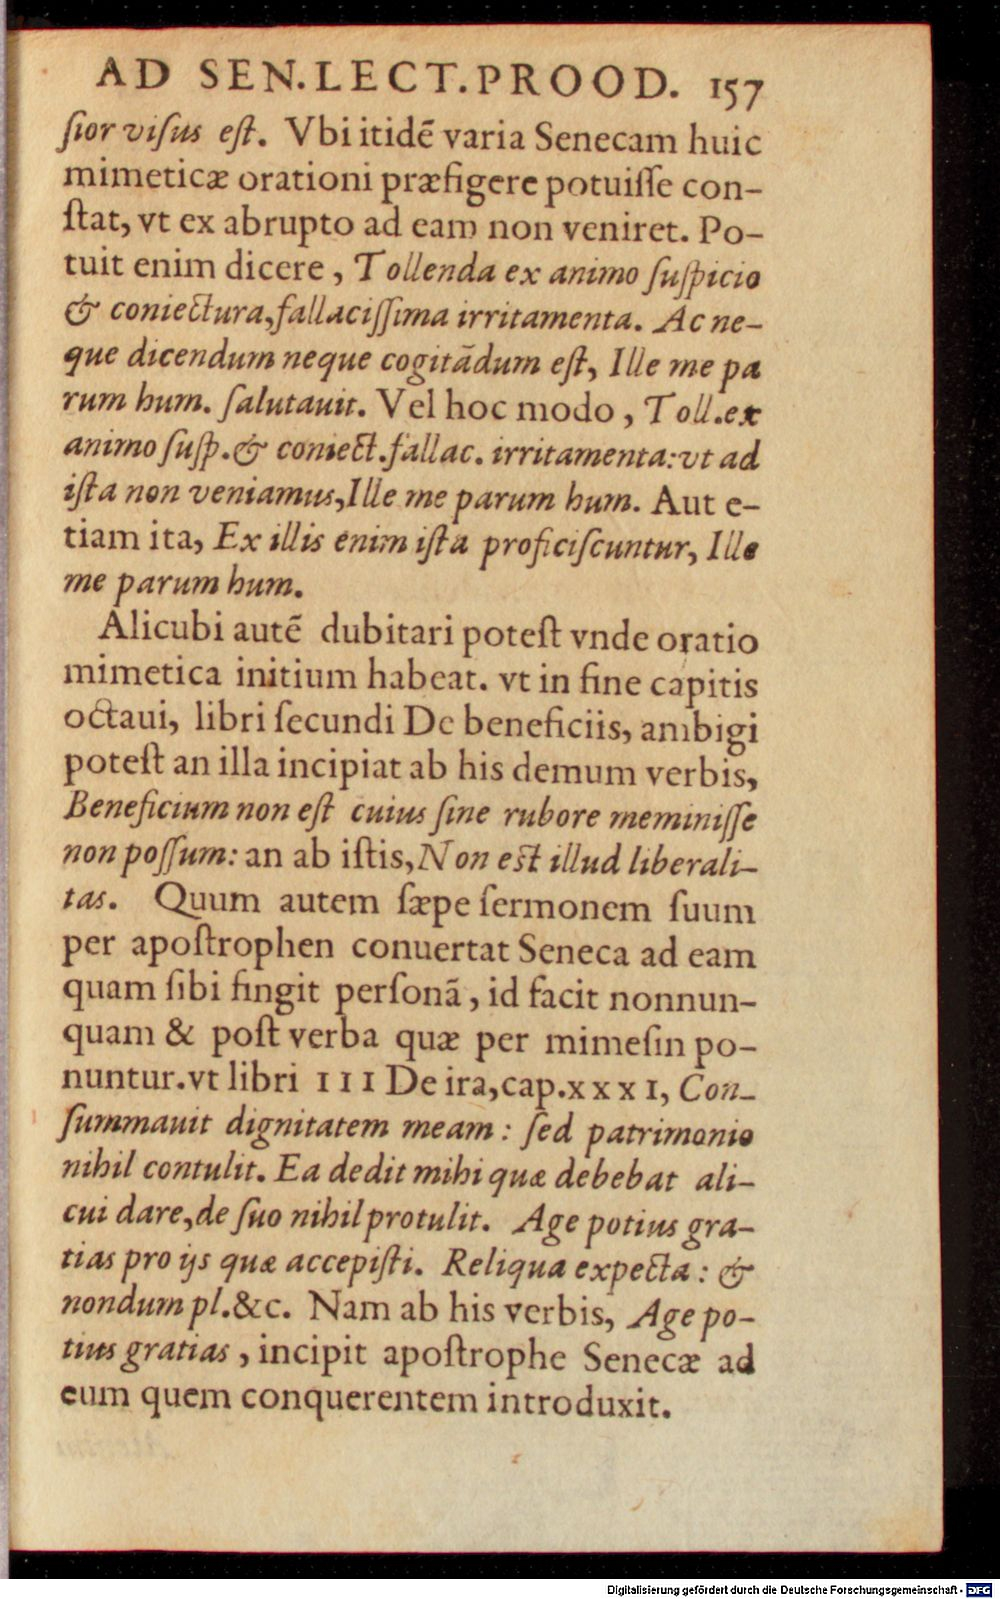 AD SEN.LECT.PROOD. 157
ſior viſus eſt. Vbi itidē varia Senecam huic
mimeticæ orationi præfigere potuiſſe con-
ſtat, vt ex abrupto ad eam non veniret. Po-
tuit enim dicere, Tollenda ex animo ſuſpicio
& coniectura, fallaciſſima irritamenta. Ac ne-
que dicendum neque cogitādum eſt, Ille me pa
rum hum. ſalutauit. Vel hoc modo, Toll.ex
animo ſuſp.& coniect.fallac. irritamenta:vt ad
iſta non veniamus,Ille me parum hum. Aut e-
tiam ita, Ex illis enim iſta proficiſcuntur, Ille
me parum hum.
Alicubi autē dubitari poteſt vnde oratio
mimetica initium habeat. vt in fine capitis
octaui, libri ſecundi De beneficiis, ambigi
poteſt an illa incipiat ab his demum verbis,
Beneficium non eſt cuius ſine rubore meminiſſe
non poſſum: an ab iſtis,Non eſt illud liberali-
tas. Quum autem ſæpe ſermonem ſuum
per apoſtrophen conuertat Seneca ad eam
quam ſibi fingit perſonā, id facit nonnun-
quam & poſt verba quæ per mimeſin po-
nuntur.vt libri III De ira,cap.xxxI, Con-
ſummauit dignitatem meam: ſed patrimonio
nihil contulit. Ea dedit mihi quæ debebat ali-
cui dare,de ſuo nihil protulit. Age potius gra-
tias pro ijs quæ accepiſti. Reliqua expecta: &
nondum pl.&c. Nam ab his verbis, Age po-
tius gratias, incipit apoſtrophe Senecæ ad
eum quem conquerentem introduxit.
Digitalisierung gefördert durch die Deutsche Forschungsgemeinschaft - DFG